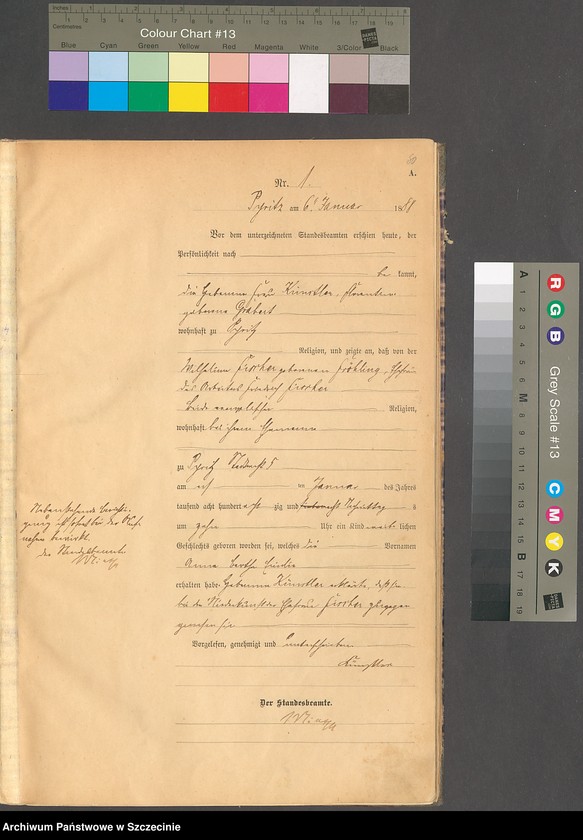 Inches
Centimetres
Colour Chart #13
Blue Cyan Green Yellow Red Magenta White 3/Color Black
80
A.
Nr. 1.
Pyritz am 6t Januar 1881
Vor dem unterzeichneten Standesbeamten erschien heute, der
Persönlichkeit nach
be kannt,
die Hebamme Frau Künstler, Florentine
geborene Grabert
wohnhaft zu Pyritz
Religion, und zeigte an, daß von der
Wilhelmine Fischer geborenen Ehefrau
des Arbeiters Friedrich Fischer
beide evangelischer Religion,
wohnhaft bei ihrem Ehemanne
zu Pyritz
am ten Januar des Jahres
tausend acht hundert acht zig und
um zehn Uhr ein Kind weib lichen
Geschlechts geboren worden sei, welches die Vornamen
Anna Bertha
erhalten habe. Hebamme Künstler erklärte, daß sie
bei der Niederkunft der Ehefrau Fischer zugegen
gewesen sei
Vorgelesen, genehmigt und unterschrieben
Künstler
Der Standesbeamte.
Nebenstehende
der Standesbeamte
Grey Scale #13
R G B
C M Y K
A 1 2 3 4 5 6 M 8 9 10 11 12 13 14 15 B 17 18 19
Archiwum Państwowe w Szczecinie